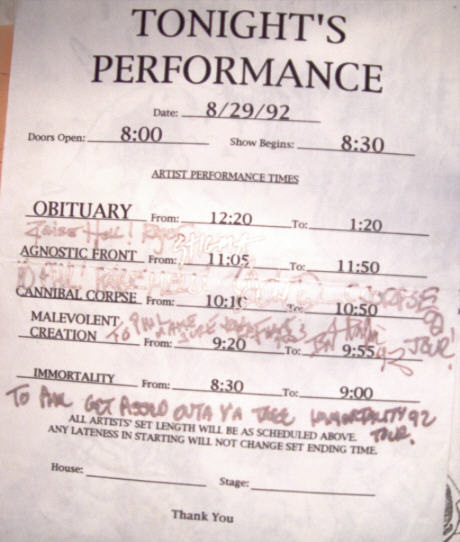 TONIGHT'S
PERFORMANCE
Date: 8/29/92
Doors Open: 8:00 Show Begins: 8:30
ARTIST PERFORMANCE TIMES
OBITUARY From: 12:20 To: 1:20
Raise Hell!
AGNOSTIC FRONT From: 11:05 To: 11:50
CANNIBAL CORPSE From: 10:10 To: 10:50
MALEVOLENT
CREATION From: 9:20 To: 9:55
TO PHIL
92 TOUR!
IMMORTALITY From: 8:30 To: 9:00
TO PHIL GET OUTA YA TREE IMMORTALITY 92
TOUR.
ALL ARTISTS' SET LENGTH WILL BE AS SCHEDULED ABOVE.
ANY LATENESS IN STARTING WILL NOT CHANGE SET ENDING TIME.
House: Stage:
Thank You